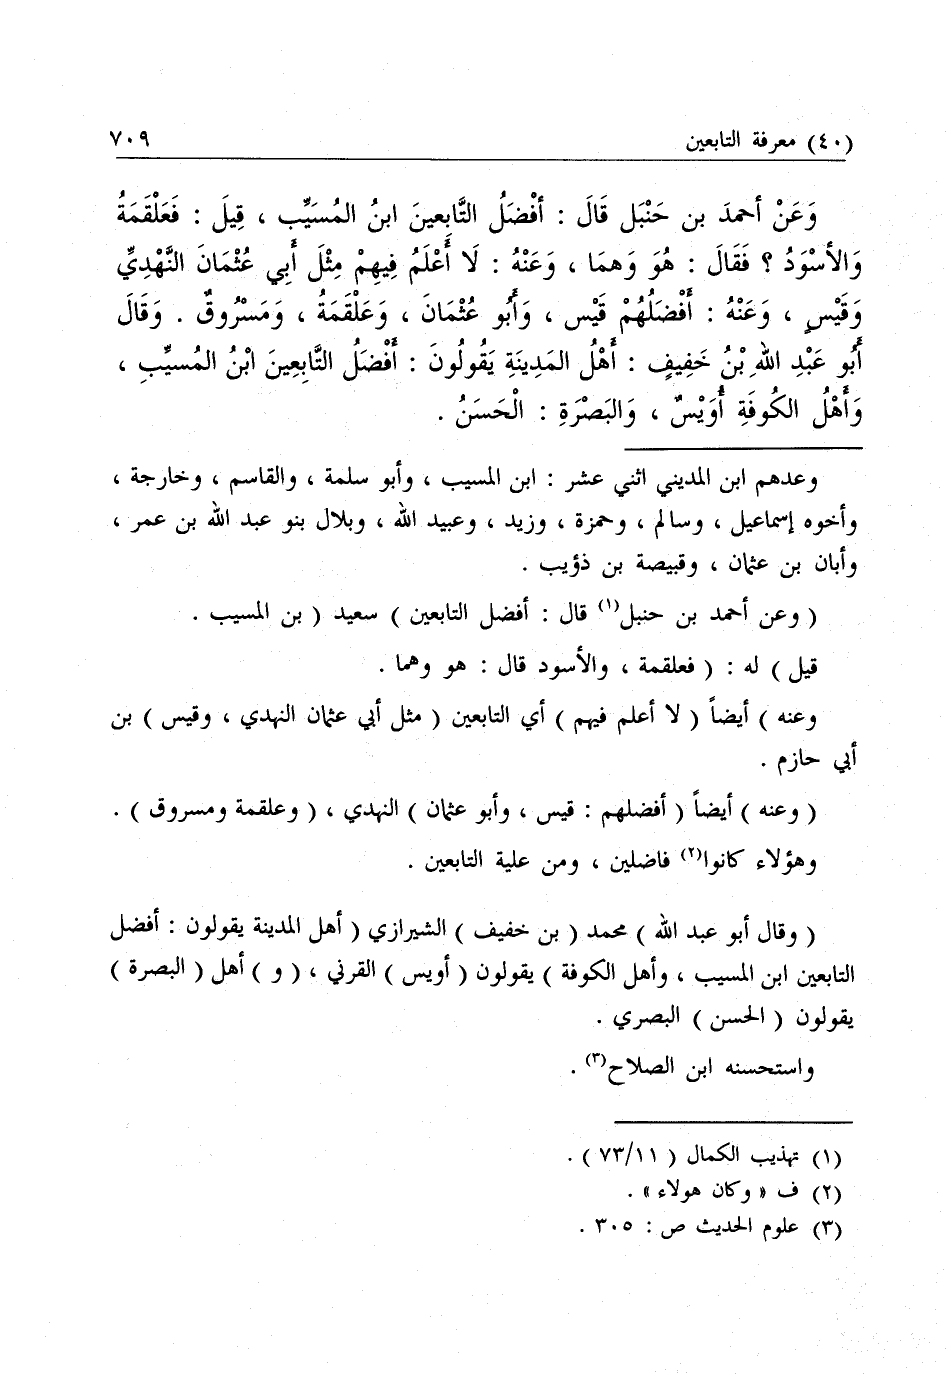 (٤٠) معرفة التابعين ٧٠٩
وَعَنْ أحمدَ بن حَنْبَل قَالَ : أفْضَلُ التَّابعينَ ابنُ المُسَيِّب ، قِيلَ : فَعَلْقَمَةُ
وَالأسْوَدُ ؟ فَقَالَ : هُوَ وَهمَا ، وَعَنْهُ : لَا أَعْلَمُ فِيهِمْ مِثْلَ أَبِي عُثْمَانَ النَّهْدِيِّ
وَقَيْسٍ ، وَعَنْهُ : أَفْضَلُهُمْ قَيْس ، وَأَبُو عُثْمَانَ ، وَعَلْقَمَةُ ، وَمَسْرُوقٌ . وَقَالَ
أَبُو عَبْدِ اللهِ بْنُ خَفِيفٍ : أَهْلُ المَدِينَةِ يَقُولُونَ : أَفْضَلُ التَّابِعِينَ ابْنُ المُسيِّبِ ،
وَأَهْلُ الكُوفَةِ أُوَيْسٌ ، وَالبَصْرَةِ : الْحَسَنُ .
وعدهم ابن المديني اثني عشر : ابن المسيب ، وأبو سلمة ، والقاسم ، وخارجة ،
وأخوه إسماعيل ، وسالم ، وحمزة ، وزيد ، وعبيد الله ، وبلال بنو عبد الله بن عمر ،
وأبان بن عثمان ، وقبيصة بن ذؤيب .
( وعن أحمد بن حنبل(١) قال : أفضل التابعين ) سعيد ( بن المسيب .
قيل ) له : ( فعلقمة ، والأسود قال : هو وهما .
وعنه ) أيضاً ( لا أعلم فيهم ) أي التابعين ( مثل أبي عثمان النهدي ، وقيس ) بن
أبي حازم .
( وعنه ) أيضاً ( أفضلهم : قيس ، وأبو عثمان ) النهدي ، ( وعلقمة ومسروق ) .
وهؤلاء كانوا(٢) فاضلين ، ومن علية التابعين .
( وقال أبو عبد الله ) محمد ( بن خفيف ) الشيرازي ( أهل المدينة يقولون : أفضل
التابعين ابن المسيب ، وأهل الكوفة ) يقولون ( أويس ) القرني ، ( و ) أهل ( البصرة )
يقولون ( الحسن ) البصري .
واستحسنه ابن الصلاح(٣) .
(١) تهذيب الكمال ( ٧٣/١١ ) .
(٢) ف « وكان هولاء » .
(٣) علوم الحديث ص : ٣٠٥ .